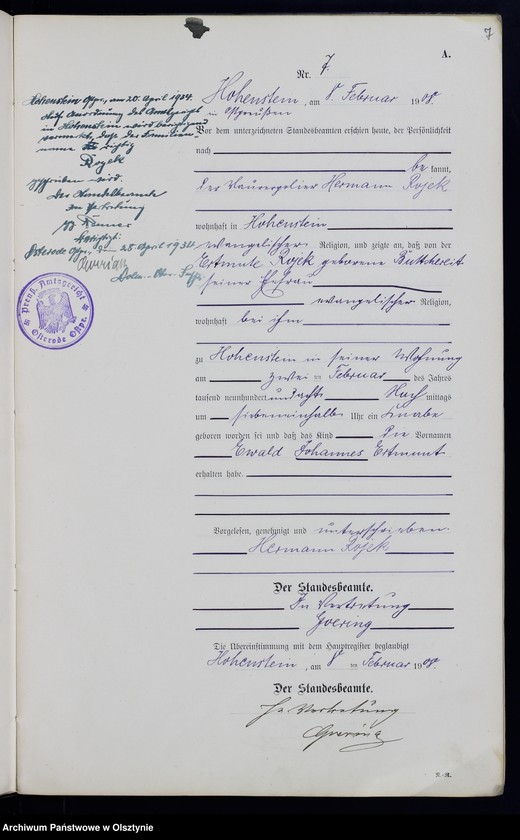 7
A.
Nr. 7
Hohenstein in Ostpreußen, am 8. Februar 1908.
Vor dem unterzeichneten Standesbeamten erschien heute, der Persönlichkeit
nach
bekannt,
der Maurerpolier Hermann Rojek
wohnhaft in Hohenstein
evangelischer Religion, und zeigte an, daß von der
Ertmute Rojek geborene Buttchereit
seiner Ehefrau
evangelischer Religion,
wohnhaft bei ihm
zu Hohenstein in seiner Wohnung
am zwei ten Februar des Jahres
tausend neunhundert und acht Nach mittags
um siebeneinhalb Uhr ein Knabe
geboren worden sei und daß das Kind die Vornamen
Ewald Johannes Ertmunt
erhalten habe.
Vorgelesen, genehmigt und unterschrieben.
Hermann Rojek
Der Standesbeamte.
In Vertretung
Goering
Die Übereinstimmung mit dem Hauptregister beglaubigt
Hohenstein, am 8 ten Februar 1908.
Der Standesbeamte.
In Vertretung
Goering
Hohenstein Ostpr., am 20. April 1934.
Auf Anordnung des Amtsgerichts
in Hohenstein wird berichtigend
vermerkt, daß der Familien-
name richtig
Rojek
geschrieben wird.
Der Standesbeamte
In Vertretung
Osterode Ostpr., den 25. April 1934.
Preuß. Amtsgericht
Osterode Ostpr.
R.-R.
Archiwum Państwowe w Olsztynie